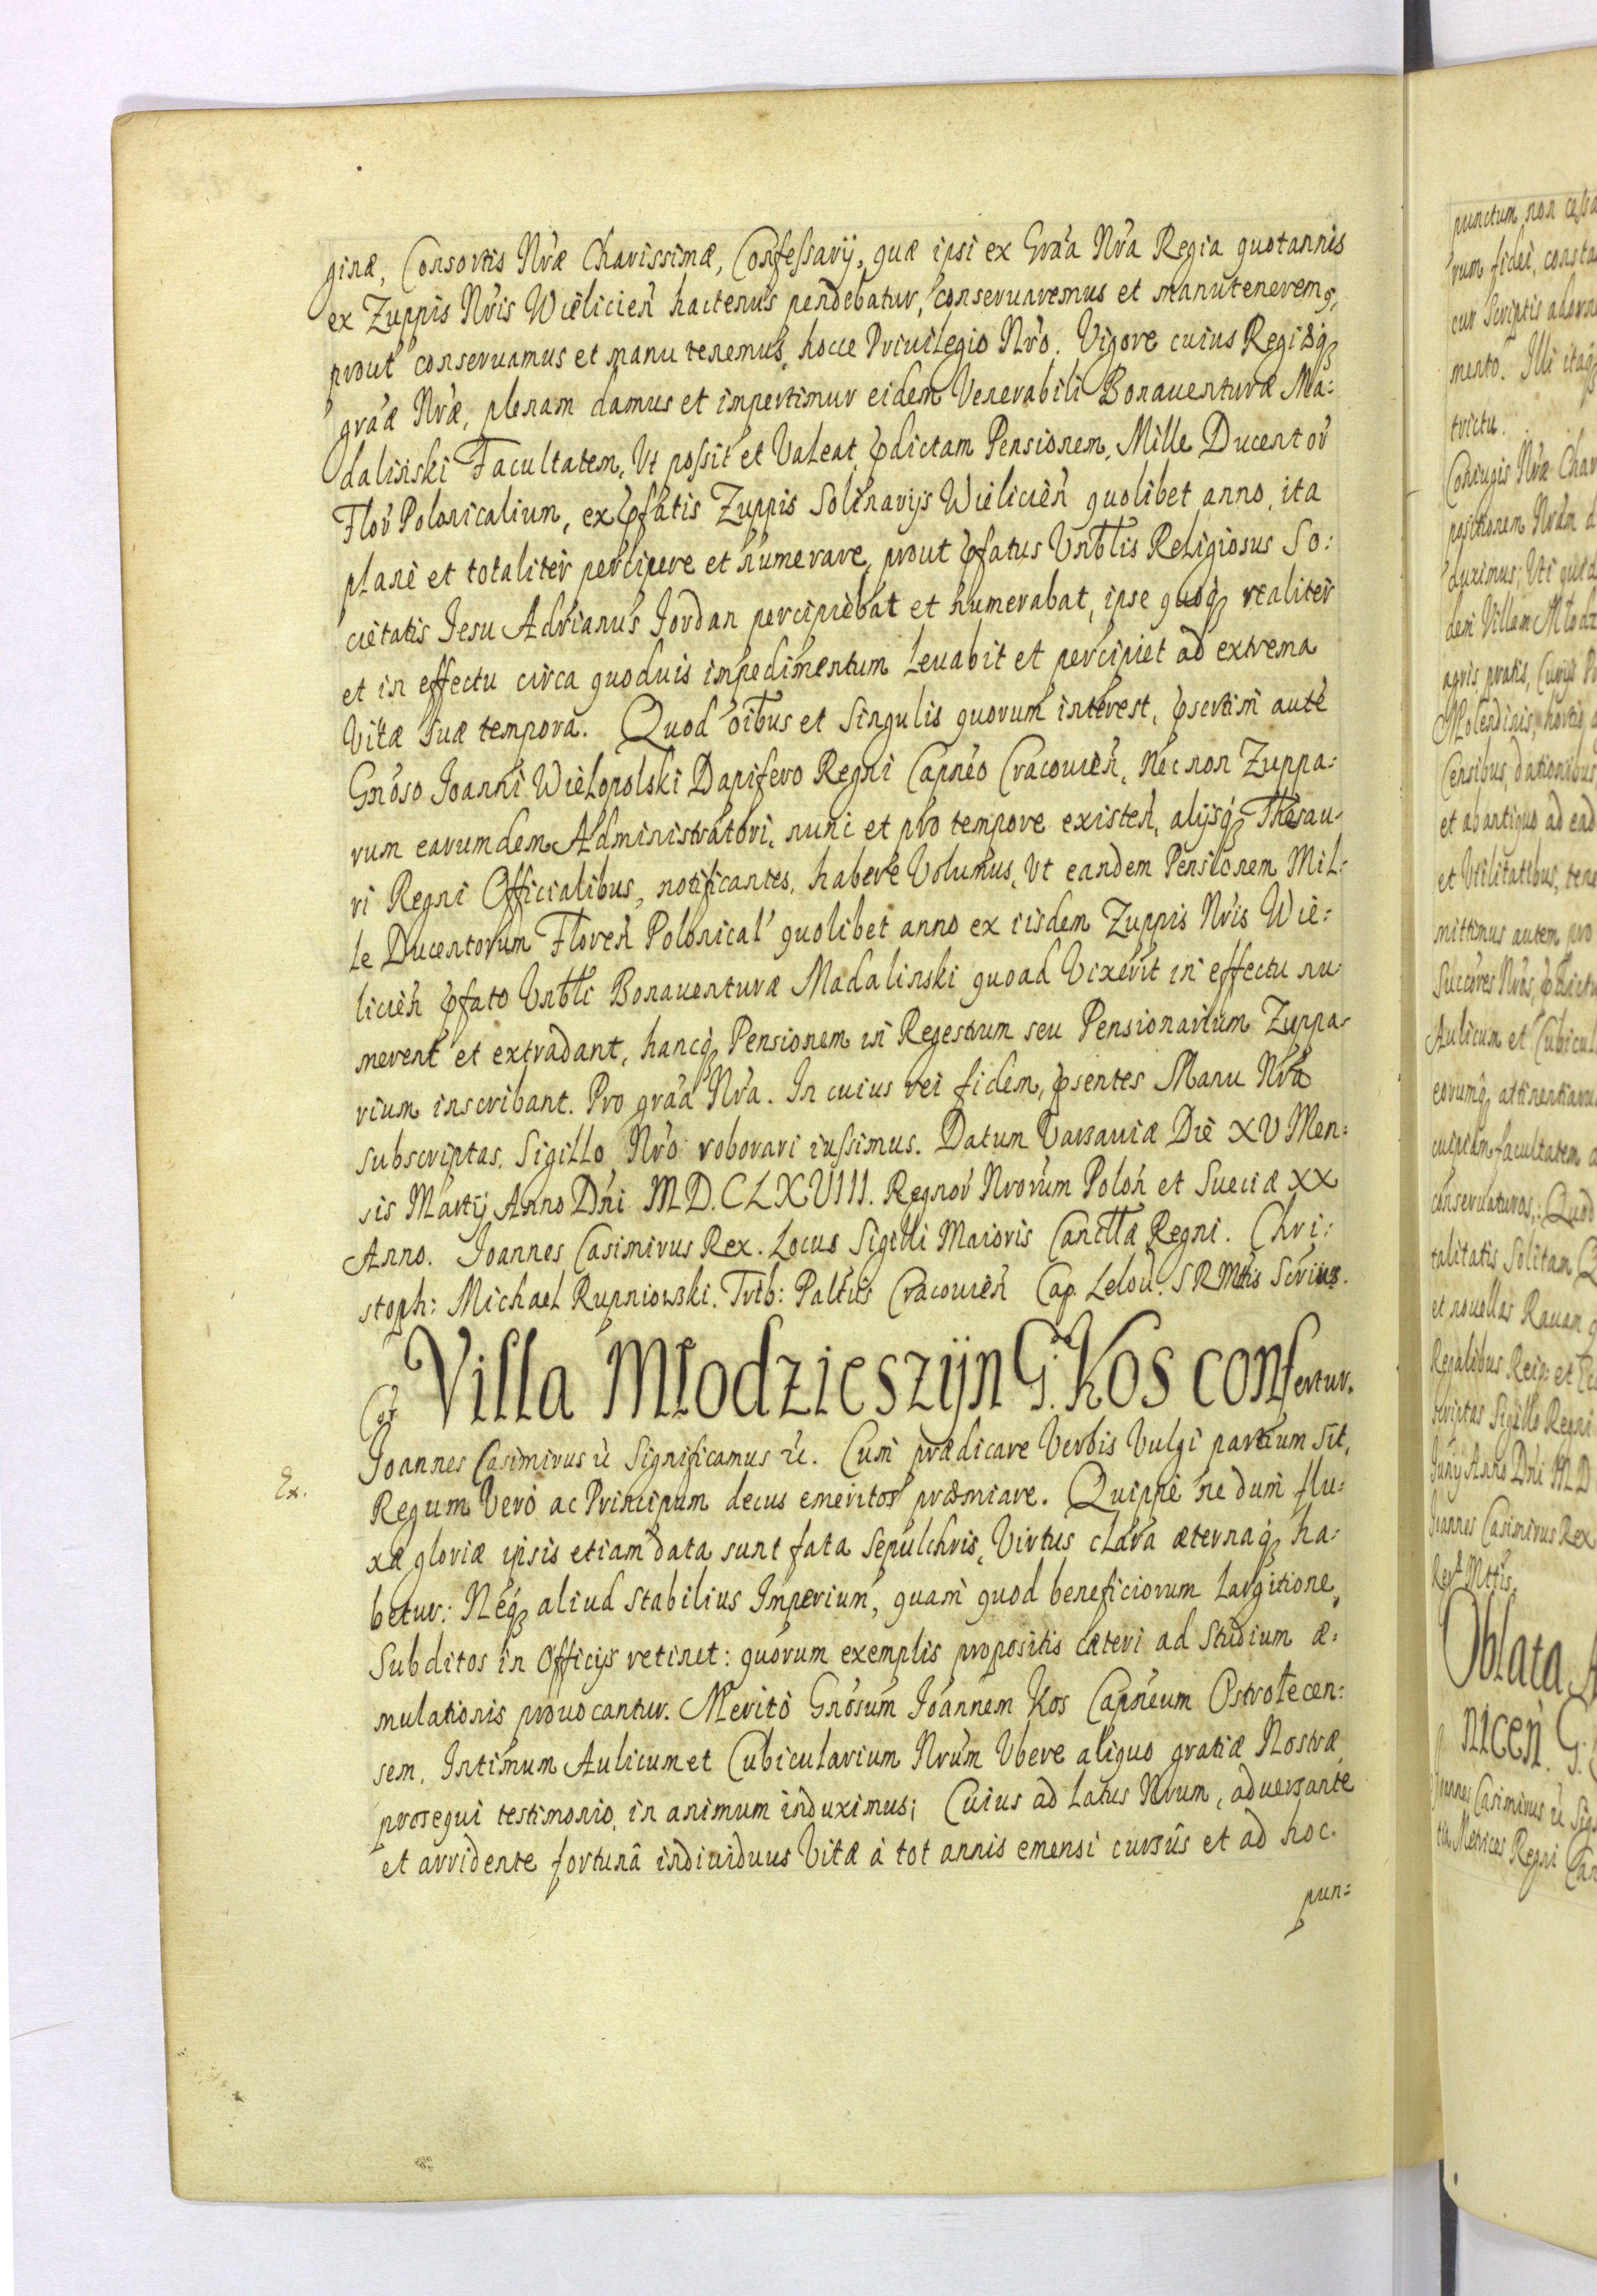 ginæ, Consortis Nræ Charissimæ, Confessarij, quæ ipsi ex Gráa Nra Regia quotannis
ex Zuppis Nris Wielicień hactenus pendebatur, conseruaremus et manuteneremꝰ,
prout conseruamus et manu tenemus, hocce Priuilegio Nro. Vigore cuius Regiæq́ꝫ
gráæ Nræ, plenam damus et impertimur eidem Venerabili Bonauenturæ Ma:
dalinski Facultatem, Vt possit et Valeat, ꝓdictam Pensionem, Mille Ducentoŕ
Floŕ Polonicalium, ex ꝓfatis Zuppis Solinarijs Wielicień quolibet anno, ita
plane et totaliter percipere et numerare, prout ꝓfatus Vnbłis Religiosus So:
cietatis Iesu Adrianus Iordan percipiebat et numerabat, ipse quoq́ꝫ realiter
et in effectu circa quoduis impedimentum leuabit et percipiet ad extrema
Vitæ suæ tempora. Quod oibus et singulis quorum interest, ꝓsertim aute
Gnoso Ioanni Wielopolski Dapifero Regni Capneo Cracouień, Nec non Zuppa:
rum earumdem Administratori, nunc et pro tempore existeń, alijsq́ꝫ Thesau:
ri Regni Officialibus, notificantes, habere Volumus, Vt eandem Pensionem Mil:
le Ducentorum Floreń Polonical' quolibet anno ex iisdem Zuppis Nris Wie:
licień ꝓfato Vnbłi Bonauenturæ Madalinski quoad Vixerit in effectu nu:
merent et extradant, hancq́ꝫ Pensionem in Regestrum seu Pensionarium Zuppa:
rium inscribant. Pro gráa Nra. In cuius rei fidem, ꝓsentes Manu Nra
subscriptas, Sigillo Nro roborari iussimus. Datum Varsauiæ Die XV Men:
sis Martij Anno Dńi M.D.CLXVIII. Regnoŕ Nrorum Poloń et Sueciæ XX
Anno. Ioannes Casimirus Rex. Locus Sigilli Maioris Cancłłæ Regni. Chri:
stoph: Michael Rupniowski. Trib: Paltus Cracouień Cap. Lelou. SRMtis Scrius.
Cof Villa Młodzieszijn G. Kos confertur.
Ex.
Ioannes Casimirus ꝛc Significamus ꝛc. Cum prædicare Verbis Vulgi partium sit,
Regum Vero ac Principum decus emeritos præmiare. Quippe ne dum flu:
xæ gloriæ ipsis etiam data sunt fata Sepulchris, Virtus clara æternaq́ꝫ ha:
betur: Neq́ꝫ aliud stabilius Imperium, quam quod beneficiorum largitione,
Subditos in Officijs retinet: quorum exemplis propositis cæteri ad studium æ:
mulationis prouocantur. Merito Gnosum Ioannem Kos Capneum Ostrołecen:
sem, Intimum Aulicum et Cubicularium Nrum Vbere aliquo gratiæ Nostræ
prosequi testimonio, in animum induximus; Cuius ad latus Nrum, aduersante
et arridente fortunâ indiuiduus Vitæ à tot annis emensi cursûs et ad hoc.
pun:
punctum non cessa
rum fidei, consta
cur Scriptis adorn
mento. Illi itaq́ꝫ
trictu.
Coniugis Nræ Char
positionem Nram d
duximus; Vti quid
dem Villam Młodz
agris pratis, Curijs
Molendinis, hortis
Censibus, dationibus
et ab antiquo ad ead
et Vtilitatibus, tene
mittimus autem pro
Succores Nros, ꝓdictu
Aulicum et Cubicul
eorumq́ꝫ attinentiarum
cuipiam facultatem
conseruaturos. Quod
talitatis Solitam
et nouellas Rauam
Regalibus Reip: et
scriptas Sigillo Regni
Iunij Anno Dńi MD
Ioannes Casimirus Rex
Rea Mttis.
Oblata
niceń. G:
Ioannes Casimirus ꝛc Sig
tia Metrices Regni Can